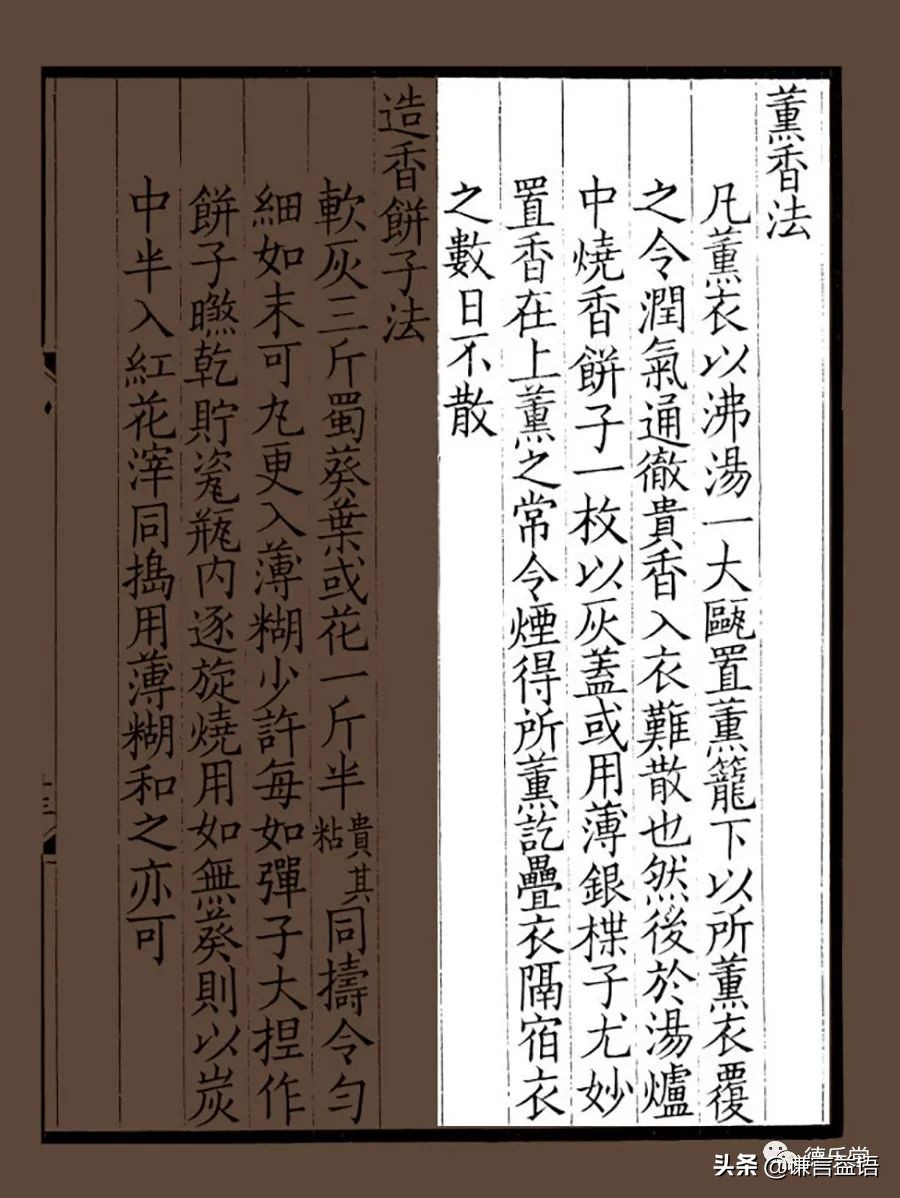 薰香法
凡薰衣以沸湯一大甌置薰籠下以所薰衣覆
之令潤氣通徹貴香入衣難散也然後於湯爐
中燒香餅子一枚以灰蓋或用薄銀楪子尤妙
置香在上薰之常令煙得所薰訖疊衣隔宿衣
之數日不散
造香餅子法
軟灰三斤蜀葵葉或花一斤半貴其粘同擣令勻
細如末可丸更入薄糊少許每如彈子大捏作
餅子曬乾貯瓷瓶內逐旋燒用如無葵則以炭
中半入紅花滓同搗用薄糊和之亦可
德乐堂
头条 @谦言益语